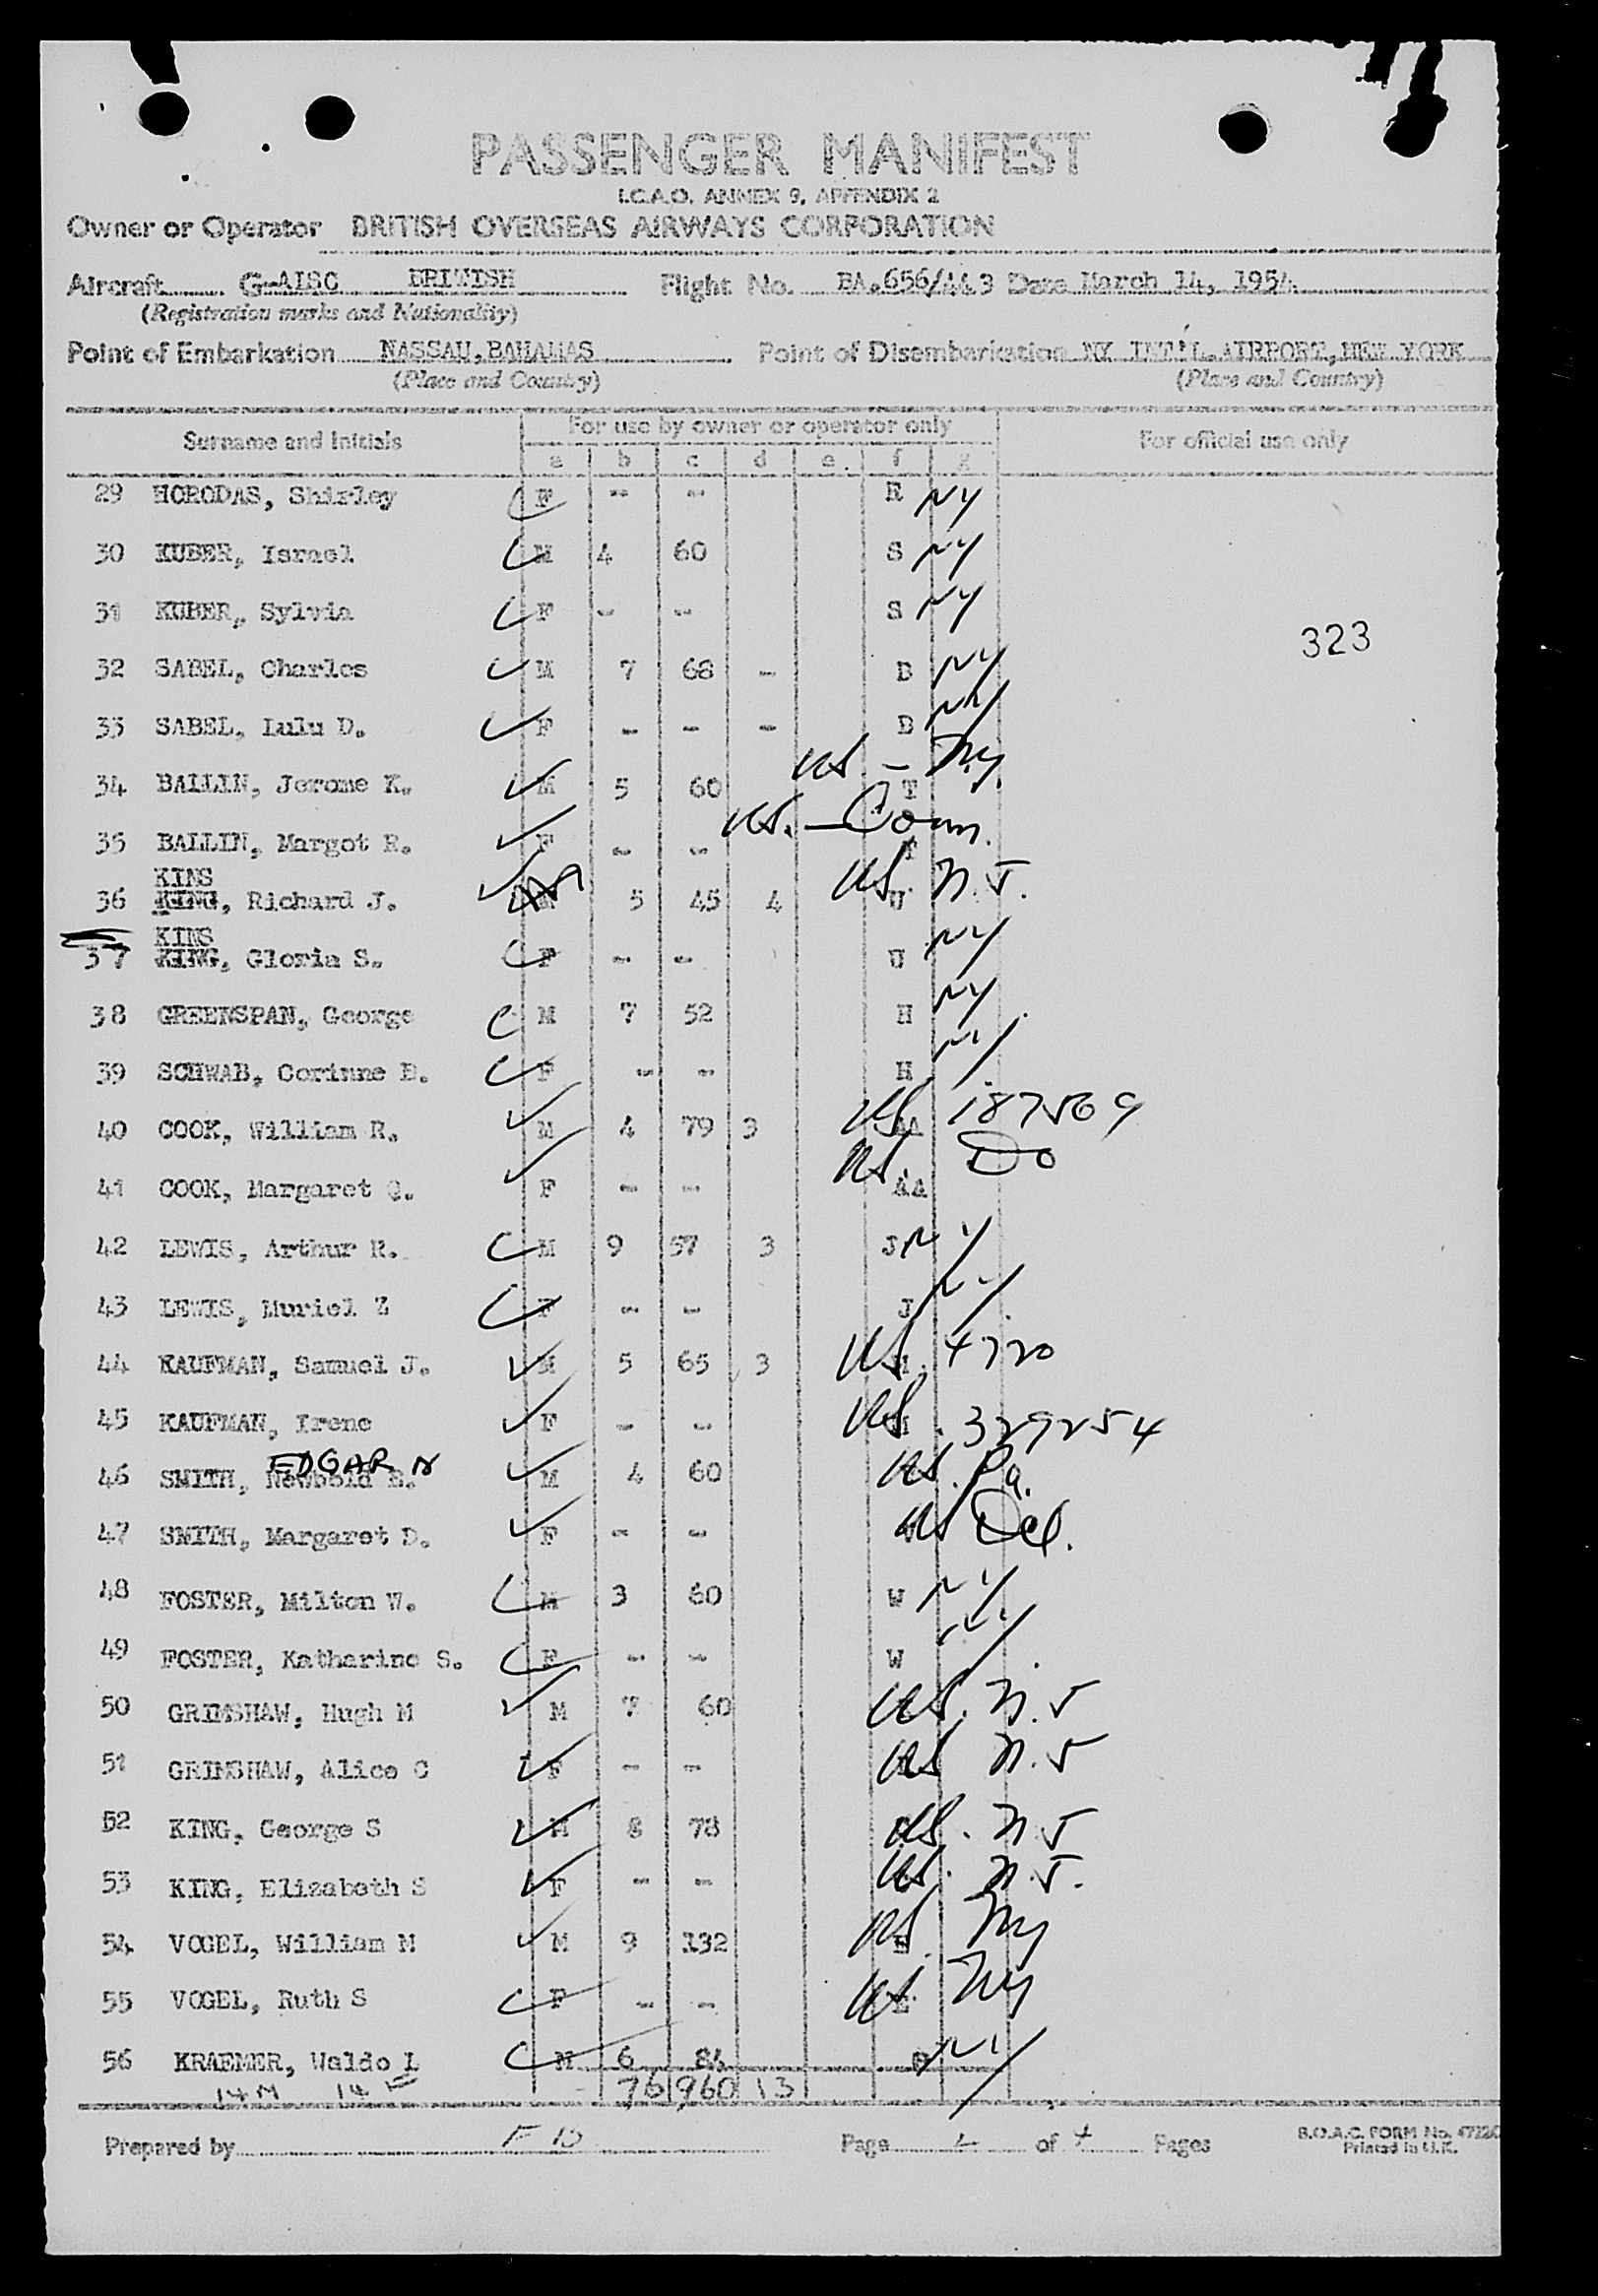 PASSENGER MANIFEST
I.C.A.O. ANNEX 9, APPENDIX 2
Owner or Operator BRITISH OVERSEAS AIRWAYS CORPORATION
Aircraft G-ALSC BRITISH Flight No. BA.656/443 Date March 14, 1954
(Registration marks and Nationality)
Point of Embarkation NASSAU, BAHAMAS Point of Disembarkation NY INT'L AIRPORT, NEW YORK
(Place and Country) (Place and Country)
Surname and Initials For use by owner or operator only For official use only
a b c d e f g
29 HORODAS, Shirley F - - R NY
30 KUBER, Israel M 4 60 S NY
31 KUBER, Sylvia F - - S NY
323
32 SABEL, Charles M 7 68 - B NY
33 SABEL, Lulu D. F - - - B NY
34 BALLIN, Jerome K. M 5 60 T US. - NY
35 BALLIN, Margot R. F - - T US. - Conn.
KINS
36 KING, Richard J. M 5 45 4 U US N.J.
KINS
37 KING, Gloria S. F - - U NY
38 GREENSPAN, George M 7 52 H NY
39 SCHWAB, Corinne B. F - - H NY
40 COOK, William R. M 4 79 3 AA US 187569
41 COOK, Margaret Q. F - - AA US Do
42 LEWIS, Arthur R. M 9 57 3 J NY
43 LEWIS, Muriel Z F - - J NY
44 KAUFMAN, Samuel J. M 5 65 3 M US 4720
45 KAUFMAN, Irene F - - M US. 329254
EDGAR N
46 SMITH, Newbold E. M 4 60 US. Pa.
47 SMITH, Margaret D. F - - US Del.
48 FOSTER, Milton W. M 3 60 W NY
49 FOSTER, Katharine S. F - - W NY
50 GRIMSHAW, Hugh M M 7 60 US. N.J
51 GRIMSHAW, Alice C F - - US N.J
52 KING, George S M 8 78 US. N.J
53 KING, Elizabeth S F - - US. N.J.
54 VOGEL, William M M 9 132 E US NY
55 VOGEL, Ruth S F - - E US NY
56 KRAEMER, Waldo L M 6 84 NY
14 M 14 F 76 960 13
Prepared by Page of 4 Pages
B.O.A.C. FORM No.
Printed in U.K.